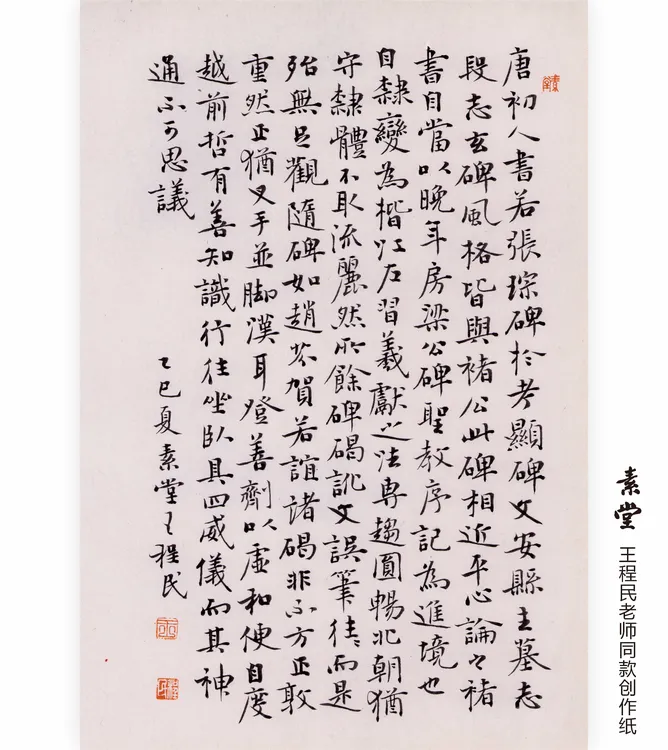 唐初人书若張琮碑於考顯碑文安縣主墓志
段志玄碑風格皆與褚公此碑相近平心論之褚
書自當以晚年房梁公碑聖教序記為進境也
自隸變為楷江左習羲獻之法專趨圓暢北朝猶
守隸體不取流麗然所餘碑碣訛文誤筆往往而是
殆無足觀隨碑如趙芬賀若誼諸碣非不方正敦
重然正猶叉手並脚漢耳登善劑以虛和便自度
越前哲有善知識行住坐臥具四威儀而其神
通不可思議
乙巳夏素堂王程民
素堂
王程民老师同款创作纸